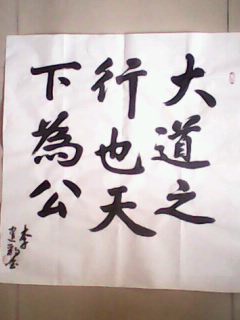 大道之
行也天
下為公
李